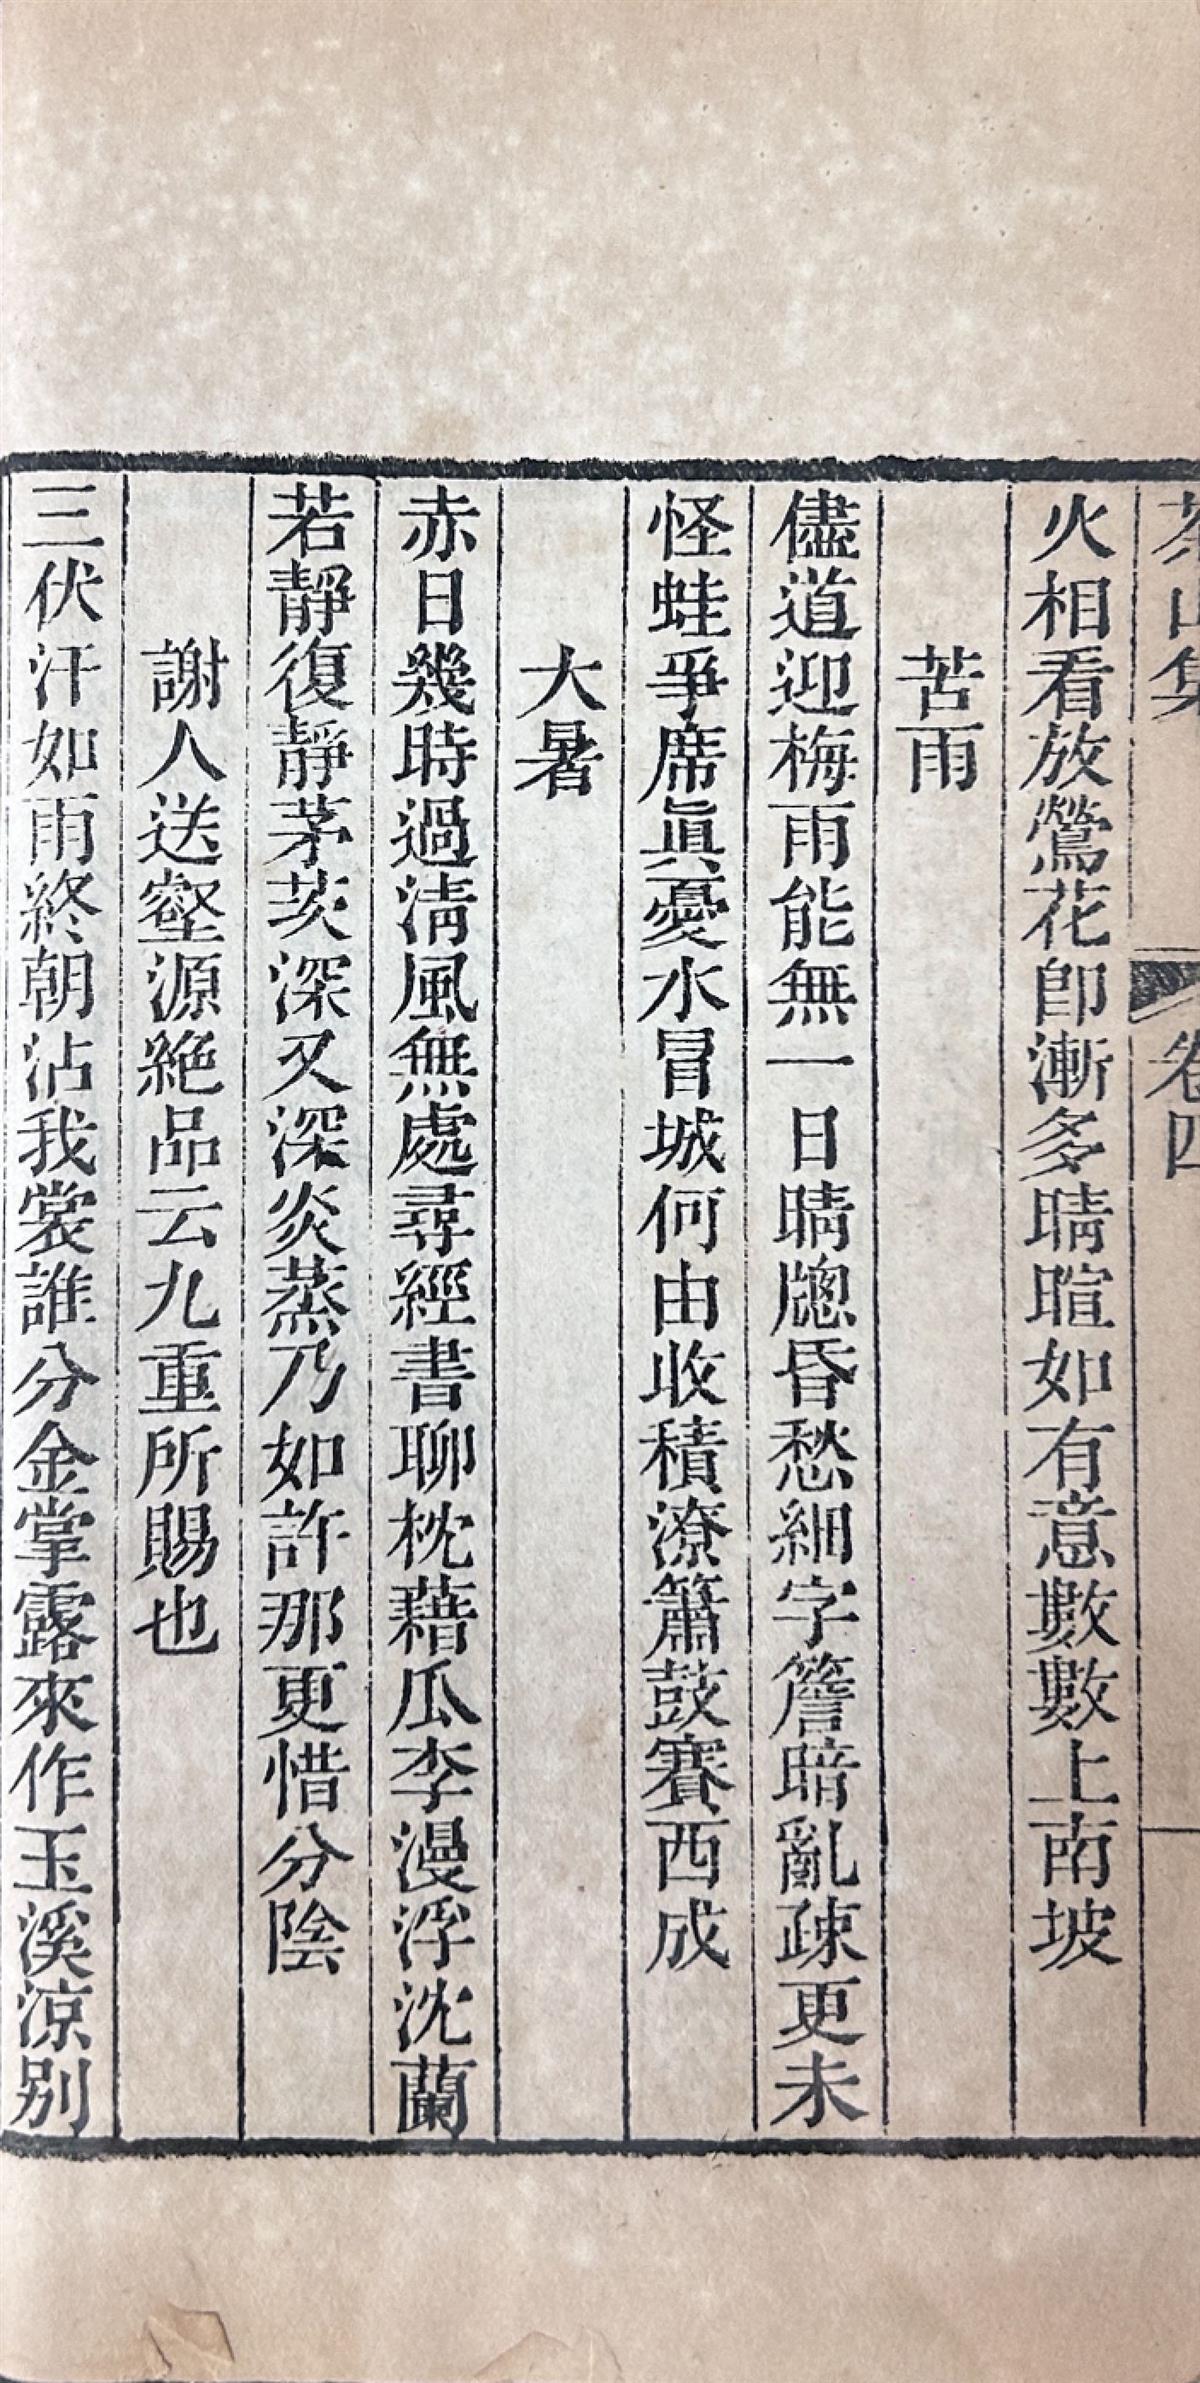 茶山集　卷四
火相看放鶯花卽漸多晴暄如有意數數上南坡
苦雨
儘道迎梅雨能無一日晴牕昏愁細字簷暗亂疎更未
怪蛙爭席眞憂水冒城何由收積潦簫鼓賽西成
大暑
赤日幾時過淸風無處尋經書聊枕藉瓜李漫浮沈蘭
若靜復靜茅茨深又深炎蒸乃如許那更惜分陰
謝人送壑源絶品云九重所賜也
三伏汗如雨終朝沾我裳誰分金掌露來作玉溪涼别